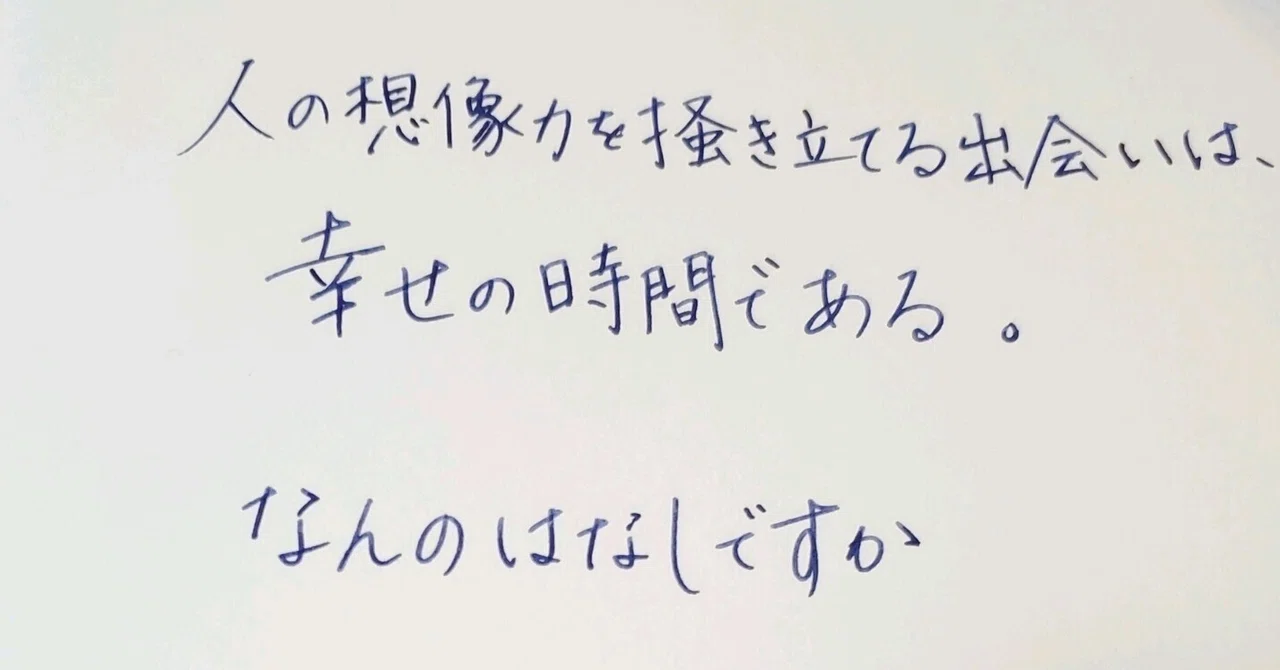 人の想像力を掻き立てる出会いは、
幸せの時間である。
なんのはなしですか